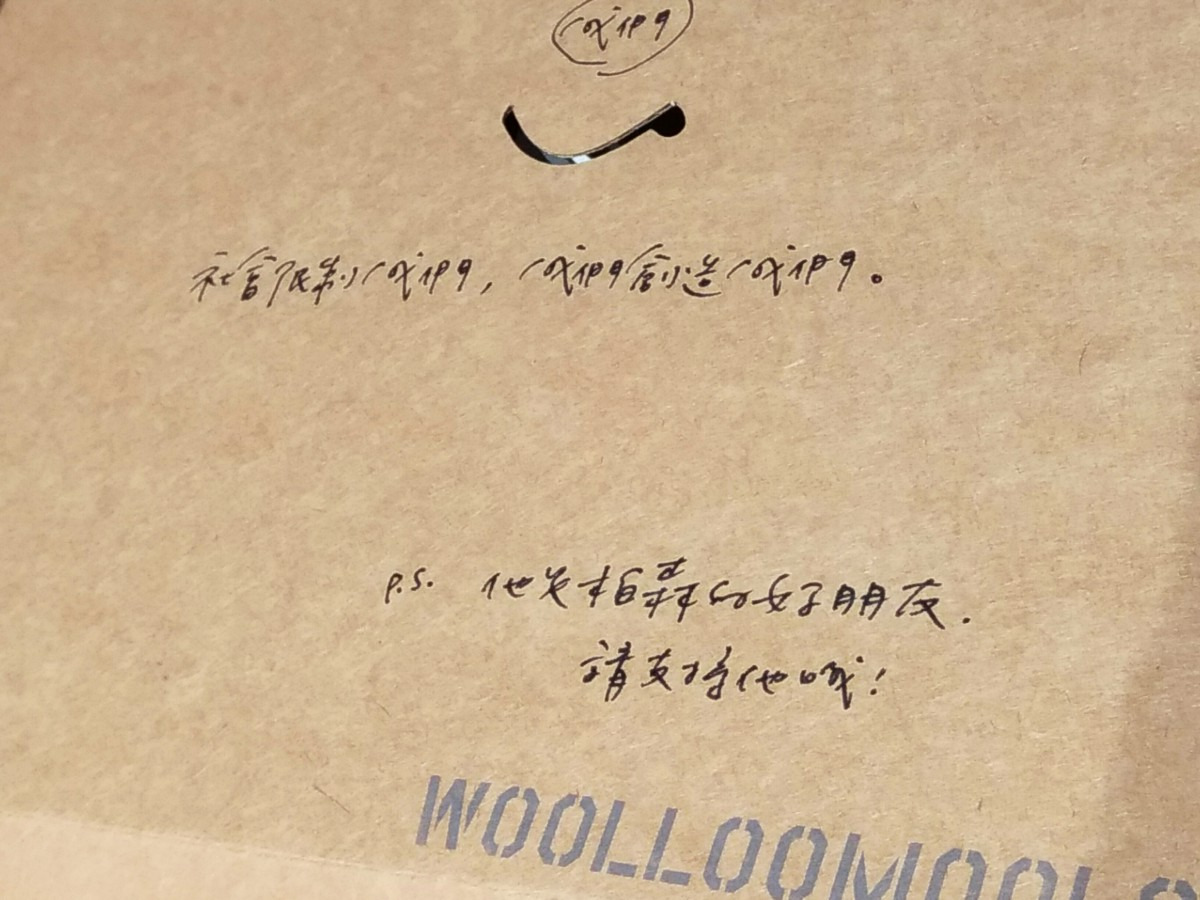 我們
社會限制我們,我們創造我們。
P.S. 他是柏森的好朋友.
請支持他哦!
WOOLLOOMOOLO